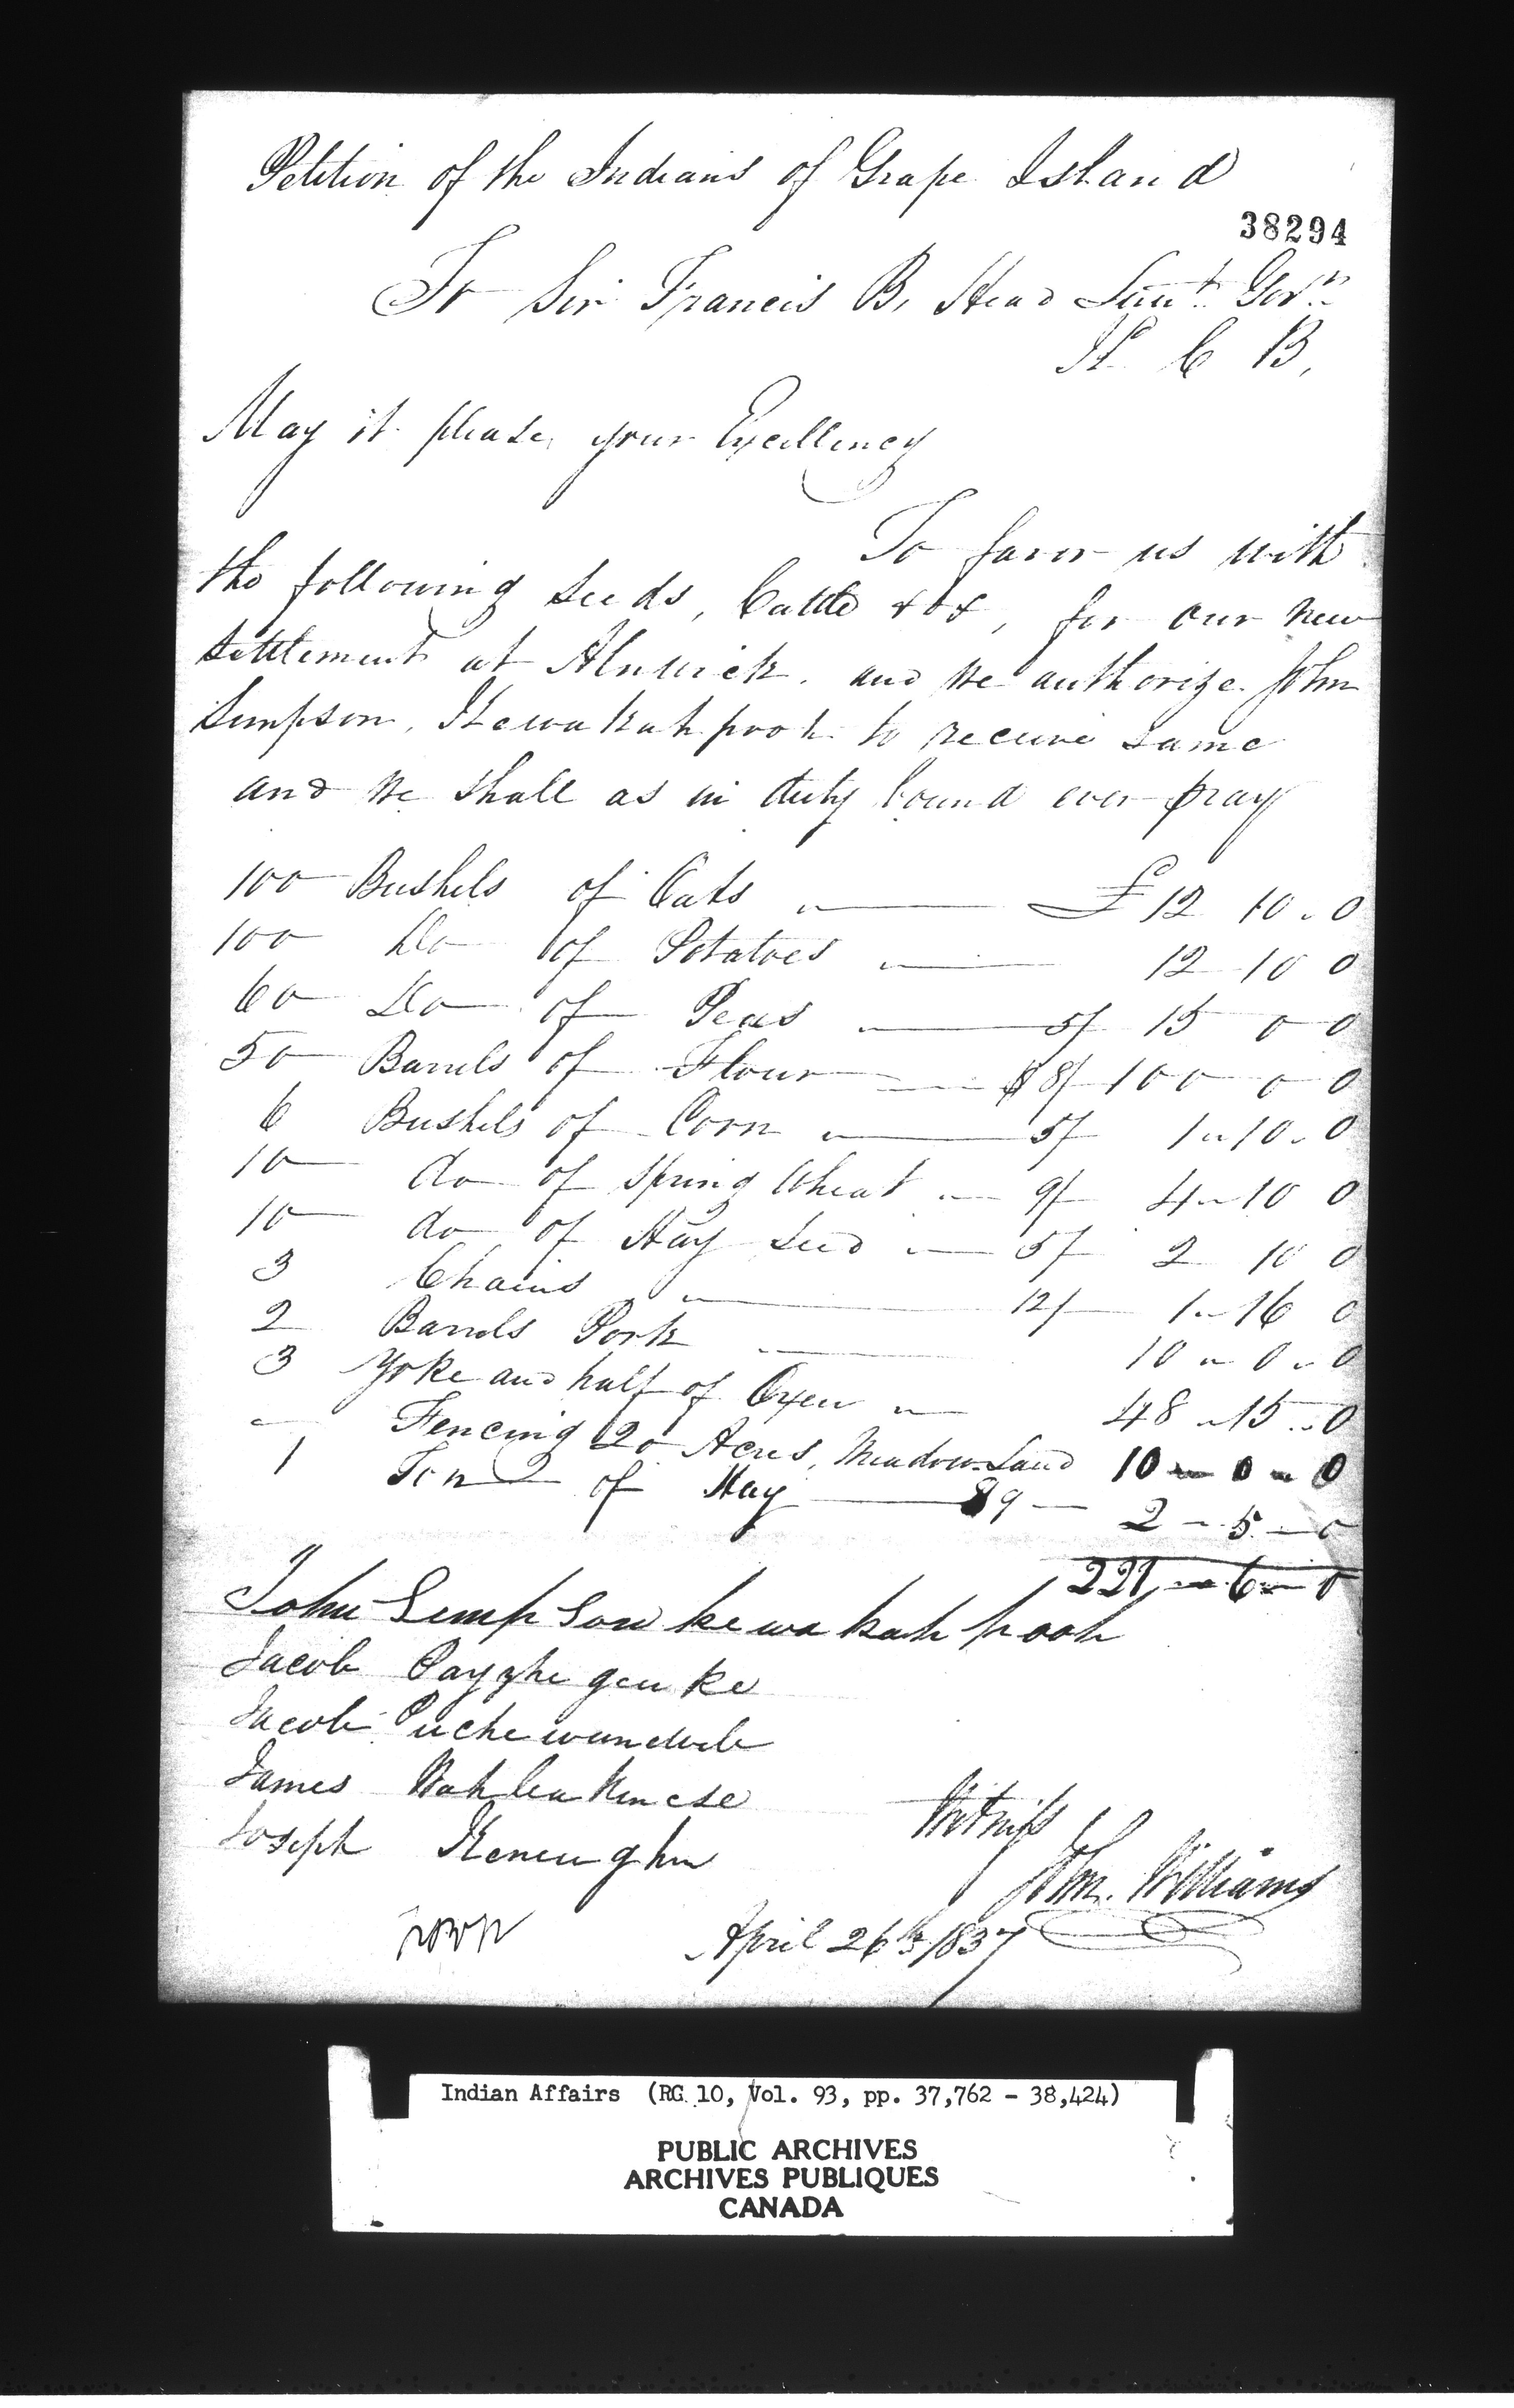 Petition of the Indians of Grape Island
38294
To Sir Francis B, Head Lieut. Govr.
K C B,
May it please your Excellency
To favor us with
the following seeds, Cattle &c &, for our new
settlement at Alnwick. and we authorize John
Simpson, Kewakahpooh to receive same
and we shall as in duty bound ever pray
100 Bushels of Oats £12 10 0
100 Do of Potatoes 12 10 0
60 Do of Peas 5/ 15 0 0
50 Barrels of Flour $8/ 100 0 0
6 Bushels of Corn 5/ 1 10 0
10 do of Spring Wheat 9/ 4 10 0
10 do of Hay Seed 5/ 2 10 0
3 Chains 12/ 1 16 0
2 Barrels Pork 10 0 0
3 Yoke and half of Oxen 48 15 0
Fencing 20 Acres, Meadow Land 10 0 0
1 Ton of Hay $9 2 5 0
221 6 0
John Simpson kewakahpooh
Jacob
Jacob
James
Joseph
Witness
John. Williams
April 26th 1837
Indian Affairs (RG 10, Vol. 93, pp. 37,762 - 38,424)
PUBLIC ARCHIVES
ARCHIVES PUBLIQUES
CANADA